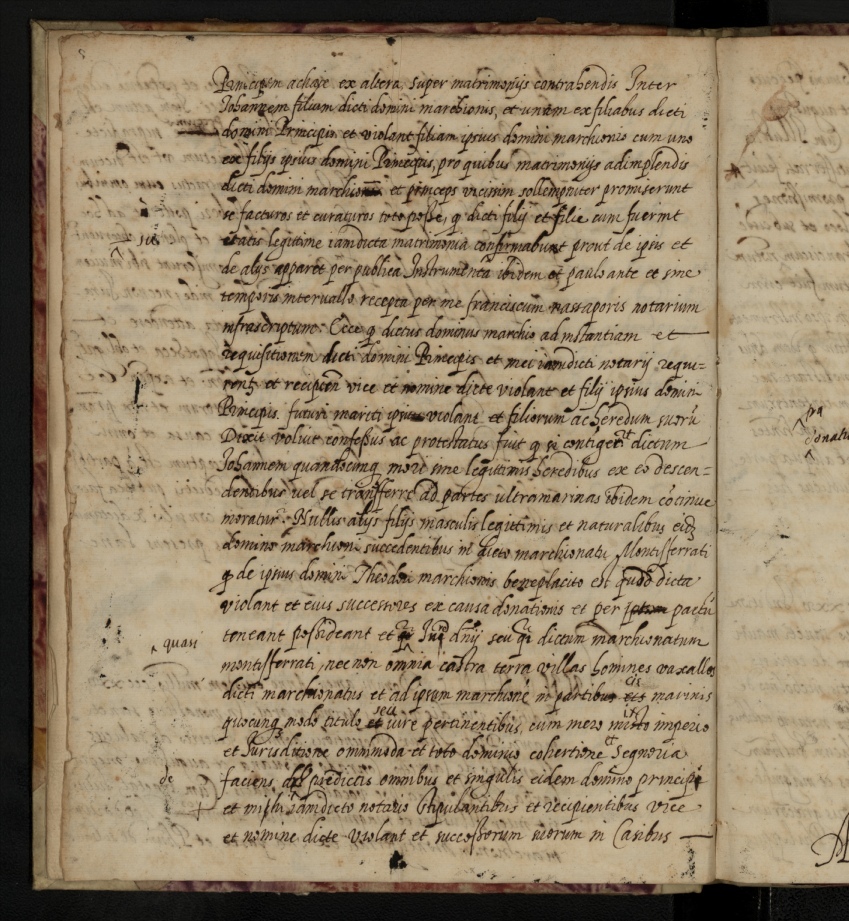 Principem achaje ex altera, super matrimonijs contrahendis Inter
Johannem filium dicti domini marchionis, et unam ex filiabus dicti
domini Principis et violant filiam ipsius domini marchionis cum uno
ex filijs ipsius domini Principis, pro quibus matrimonijs adimplendis
dicti domini marchio et princeps vicissim sollempniter promiserunt
se facturos et curaturos toto posse, q dicti filij et filie cum fuerint
sic
etatis legitime iamdicta matrimonia confirmabunt prout de ipsis et
de alijs apparet per publica Instrumenta ibidem et paulo ante et sine
temporis intervallo recepta per me franciscum massaporis notarium
infrascriptum. Ecce q dictus dominus marchio ad instantiam et
requisitionem dicti domini Principis et mei iamdicti notarij requi=
rent et recipien vice et nomine dicte violant et filij ipsius domini
Principis futuri mariti violant et filiorum ac heredum suorū
Dixit voluit confessus ac protestatus fuit q si contigerit dictum
Johannem quandocunq mori sine legitimis heredibus ex eo descen=
dentibus vel se transferre ad partes ultramarinas ibidem cōcinue
moratur. Nullis alijs filijs masculis legitimis et naturalibus
domino marchioni succedentibus in dicto marchionatu Montisferrati
q de ipsius domini Theodori marchionis beneplacito est dicta
violant et eius successores ex causa donationis et per pactū
teneant possideant et dnij seu dictum marchionatum
quasi
montisferrati, nec non omnia castra terra villas homines vaxallos
dicti marchionatus et ad ipsum marchionē in partibus cis marinis
quocunq modo titulo seu iure pertinentibus, cum mero mixto imperio
et Jurisditione ommimoda et toto dominio cohertione et Segnoria
de
faciens predictis omnibus et singulis eidem domino principi
et mihi iamdicto notario stipulantibus et recipientibus vice
et nomine dicte violant et successorum suorum in Casibus
pra
donatu